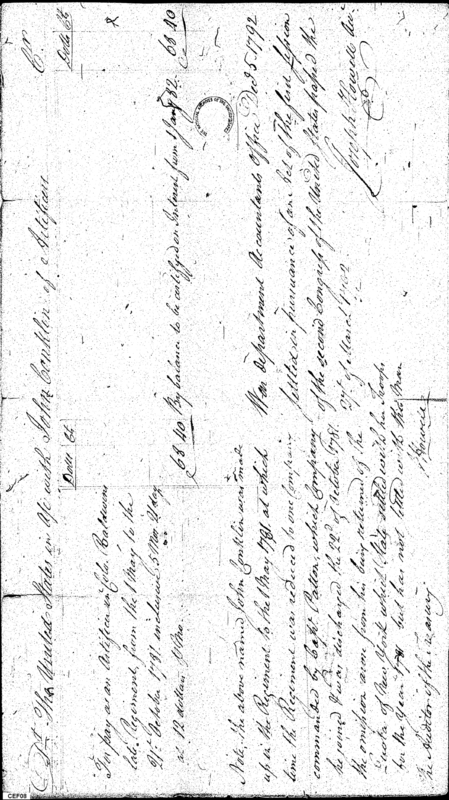 Dr. The United States in a/c with John Conklin of Artificers Cr.
Dolls Cts
Dolls Cts
For pay as an Artificer in Colo. Baldwins
late Regiment, from the 1 May to the
21st October 1781 inclusive 5 Mos. 21 days
at 12 dollars P Mo.
68 40
By balance to be certified on Interest from 1 Jany 82. 68 40
Note, the above named John Conklin was made
up in the Regiment to the 1 May 1781, at which
time the Regiment was reduced to one Company
commanded by Capt. Patton, which Company
he joined & was discharged the 22d. of October 1781.
the omission arose from his being returned of the
Quota of New York which State settled with her Troops
for the Year 1781 but has not settled with this Man
The Auditor of the Treasury
J Howell
War Department Accountants Office Decr. 5. 1792
Settled in pursuance of an Act of the first Session
of the second Congress of the United States passed the
27th. of March 1792
Joseph Howell
CEF08